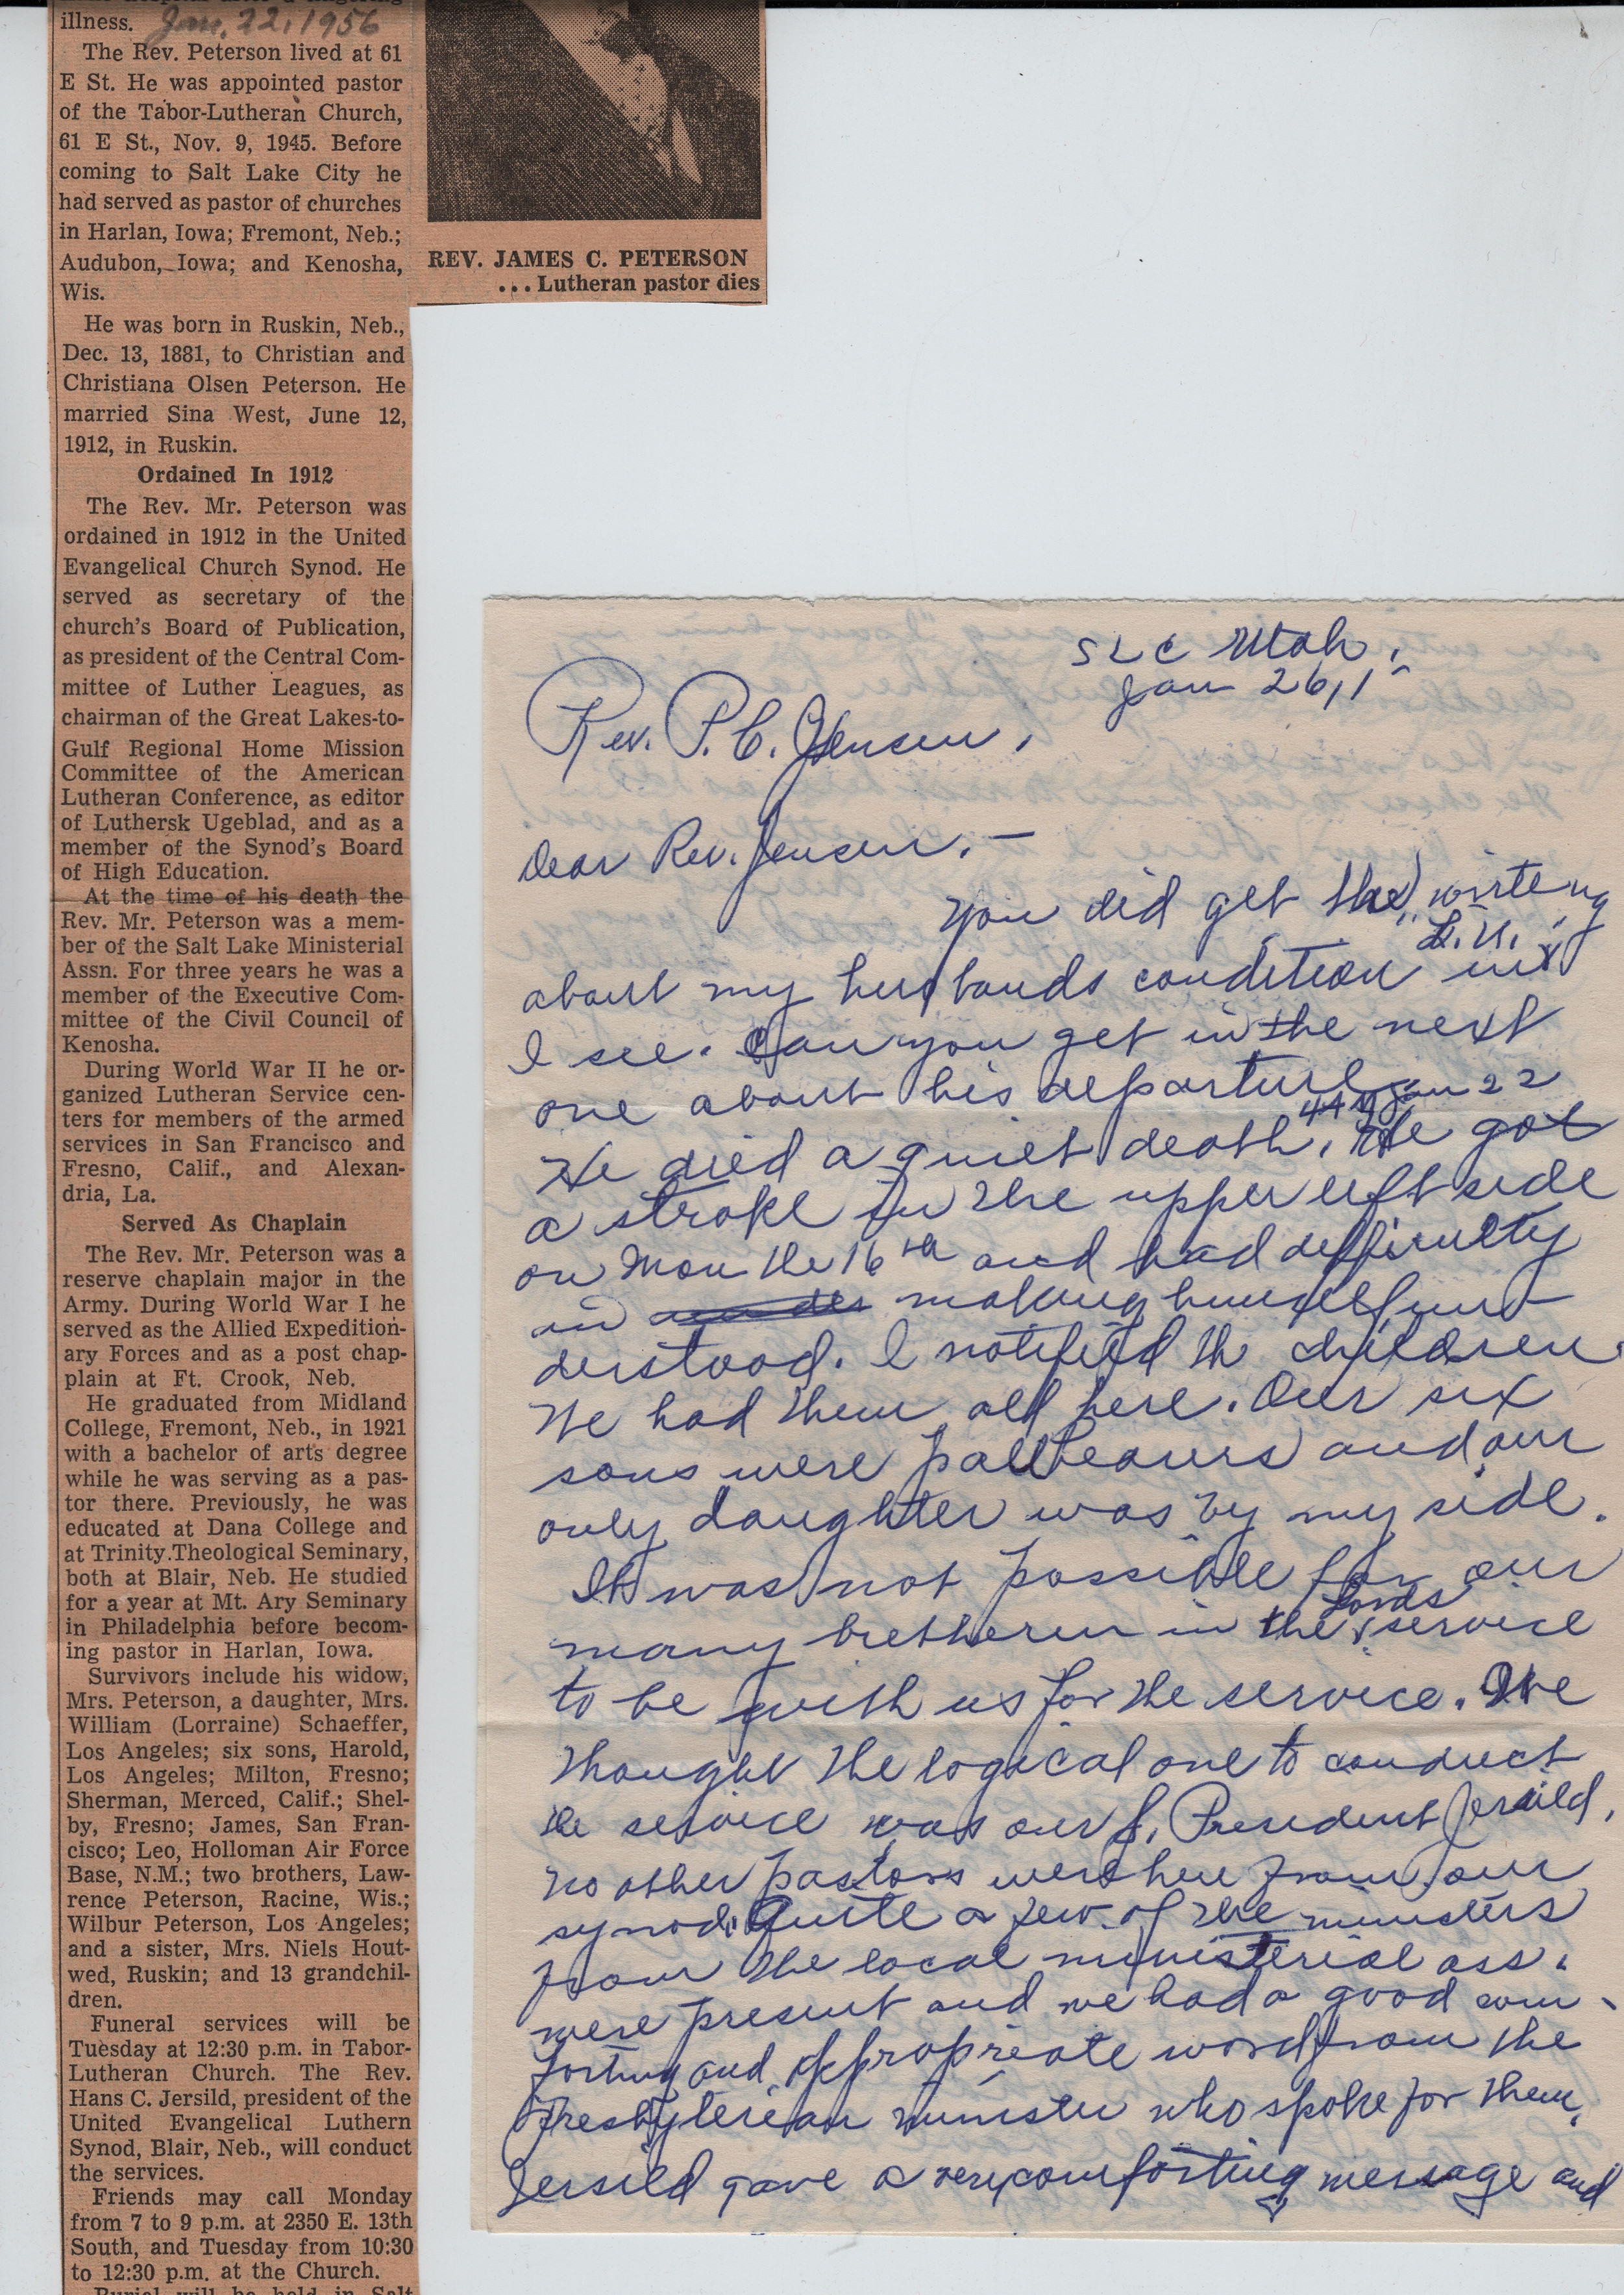 illness. Jan. 22, 1956
The Rev. Peterson lived at 61
E St. He was appointed pastor
of the Tabor-Lutheran Church,
61 E St., Nov. 9, 1945. Before
coming to Salt Lake City he
had served as pastor of churches
in Harlan, Iowa; Fremont, Neb.;
Audubon, Iowa; and Kenosha,
Wis.
He was born in Ruskin, Neb.,
Dec. 13, 1881, to Christian and
Christiana Olsen Peterson. He
married Sina West, June 12,
1912, in Ruskin.
Ordained In 1912
The Rev. Mr. Peterson was
ordained in 1912 in the United
Evangelical Church Synod. He
served as secretary of the
church's Board of Publication,
as president of the Central Com-
mittee of Luther Leagues, as
chairman of the Great Lakes-to-
Gulf Regional Home Mission
Committee of the American
Lutheran Conference, as editor
of Luthersk Ugeblad, and as a
member of the Synod's Board
of High Education.
At the time of his death the
Rev. Mr. Peterson was a mem-
ber of the Salt Lake Ministerial
Assn. For three years he was a
member of the Executive Com-
mittee of the Civil Council of
Kenosha.
During World War II he or-
ganized Lutheran Service cen-
ters for members of the armed
services in San Francisco and
Fresno, Calif., and Alexan-
dria, La.
Served As Chaplain
The Rev. Mr. Peterson was a
reserve chaplain major in the
Army. During World War I he
served as the Allied Expedition-
ary Forces and as a post chap-
plain at Ft. Crook, Neb.
He graduated from Midland
College, Fremont, Neb., in 1921
with a bachelor of arts degree
while he was serving as a pas-
tor there. Previously, he was
educated at Dana College and
at Trinity Theological Seminary,
both at Blair, Neb. He studied
for a year at Mt. Ary Seminary
in Philadelphia before becom-
ing pastor in Harlan, Iowa.
Survivors include his widow,
Mrs. Peterson, a daughter, Mrs.
William (Lorraine) Schaeffer,
Los Angeles; six sons, Harold,
Los Angeles; Milton, Fresno;
Sherman, Merced, Calif.; Shel-
by, Fresno; James, San Fran-
cisco; Leo, Holloman Air Force
Base, N.M.; two brothers, Law-
rence Peterson, Racine, Wis.;
Wilbur Peterson, Los Angeles;
and a sister, Mrs. Niels Hout-
wed, Ruskin; and 13 grandchil-
dren.
Funeral services will be
Tuesday at 12:30 p.m. in Tabor-
Lutheran Church. The Rev.
Hans C. Jersild, president of the
United Evangelical Luthern
Synod, Blair, Neb., will conduct
the services.
Friends may call Monday
from 7 to 9 p.m. at 2350 E. 13th
South, and Tuesday from 10:30
to 12:30 p.m. at the Church.
Burial will be held in Salt
REV. JAMES C. PETERSON
... Lutheran pastor dies
SLC Utah,
Jan 26,
Rev. P. C. Jensen,
Dear Rev. Jensen. —
You did get the writeng
about my husbands condition in L.U.
I see. Can you get in the next
one about his departure Jan 22
He died a quiet death. He got
a stroke in the upper left side
on Mon the 16th and had difficulty
in making himself un-
derstood. I notified the children
We had them all here. Our six
sons were pallbearers and our
only daughter was by my side.
It was not possible for our
many bretheren in the Lords service
to be with us for the service. We
thought the logical one to conduct
the service was our President Jersild,
no other pastors were here from our
synod. Quite a few of the ministers
from the local ministerial ass.
were present and we had a good com-
forting and appropreate word from the
Presbyterian minister who spoke for them.
Jersild gave a very comforting message and